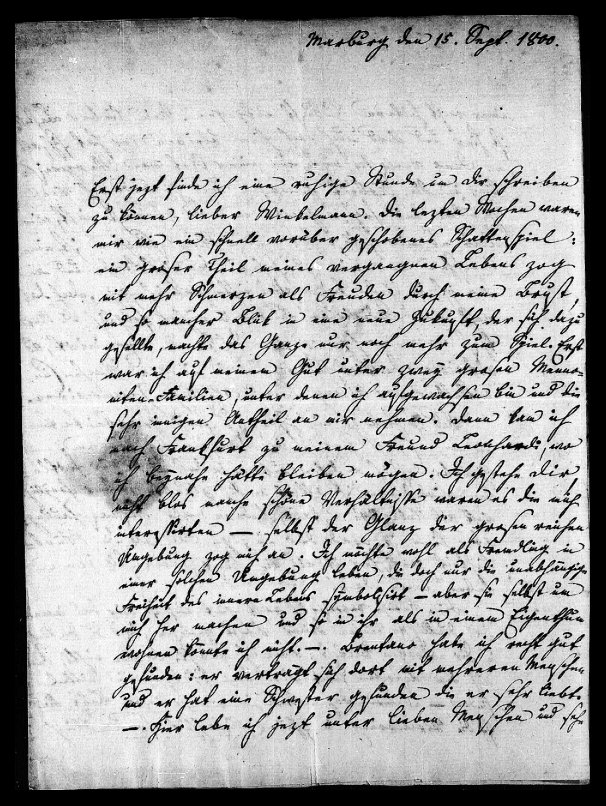 Marburg den 15. Sept. 1800.
Erst jezt finde ich eine ruhige Stunde um dir schreiben
zu können, lieber Winkelmann. die lezten Wochen waren
mir wie ein schnell vorüber geschobenes Schattenspiel:
ein groser Theil meines vergangnen Lebens zog
mit mehr Schmerzen als Freuden durch meine Brust,
und so mancher Blik in eine neue Zukunft, der sich dazu
gesellte, machte das Ganze nur noch mehr zum Spiel. Erst
war ich auf meinem Gut unter zwey grosen Menno-
niten-Familien, unter denen ich aufgewachsen bin und die
sehr innigen Antheil an mir nehmen. Dann kam ich
nach Frankfurt zu meinem Freund Leonhardi, wo
ich beynahe hätte bleiben mögen. Ich gestehe dir
nicht blos manche schöne Verhältnisse waren es die mich
interessirten — selbst der Glanz der grosen reichen
Umgebung zog mich an. Ich möchte wohl als Fremdling in
einer solchen Umgebung leben, die doch nur die unabhängige
Freiheit des innern Lebens symbolisirt — aber sie selbst um
mich her machen und so in ihr als in einem Eigenthum
wohnen könnte ich nicht. —. Brentano habe ich recht gut
gefunden: er verträgt sich dort mit mehreren Menschen
und er hat eine Schwester gefunden die er sehr liebt.
—. Hier lebe ich jezt unter lieben Menschen und sehr